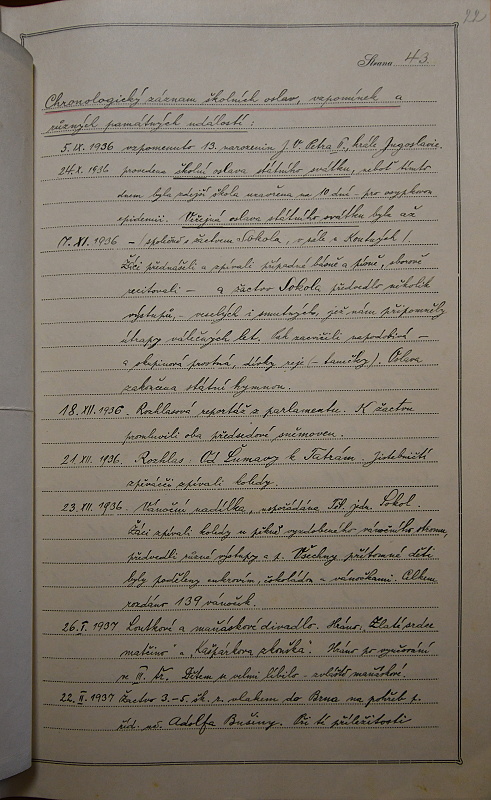 22
Strana 43.
Chronologický záznam školních oslav, vzpomínek a
různých památných událostí:
5.IX.1936 vzpomenuto 13. narozenin J. V. Petra II., krále Jugoslavie.
24.X.1936 provedena školní oslava státního svátku, neboť tímto
dnem byla zdejší škola uzavřena na 10 dní - pro
epidemii. Veřejná oslava státního svátku byla až
7.XI.1936 - (společně s žactvem Sokola, v sále u Koutných).
Žáci přednášeli a zpívali případné básně a písně, sborově
recitovali - a žactvo Sokola předvedlo několik
výstupů - veselých i smutných, jež nám připomněly
útrapy válečných let. Pak zacvičili
a skupinová prostná, dívky reje (- tanečky). Oslava
zakončena státní hymnou.
18.XII.1936. Rozhlasová reportáž z parlamentu. K žactvu
promluvili oba předsedové sněmoven.
21.XII.1936. Rozhlas: Od Šumavy k Tatrám. Jistebničtí
zpěváčci zpívali koledy.
23.XII.1936. Vánoční nadílka, uspořádána Těl. jedn. Sokol.
Žáci zpívali koledy u pěkně vyzdobeného vánočního stromu,
předvedli různé výstupy a p. Všechny přítomné děti
byly poděleny cukrovím, čokoládou a vánočkami. Celkem
rozdáno 139 vánoček.
26.I.1937 Loutkové a maňáskové divadlo. Hráno: Zlaté srdce
matčino" a "Kašpárkova zkouška". Hráno po vyučování
v II. tř. Dětem se velmi líbilo - zvláště maňáskové.
22.II.1937 Žactvo 3.-5. šk. r. vlakem do Brna na pohřeb p.
říd. uč. Adolfa Bušiny. Při té příležitosti